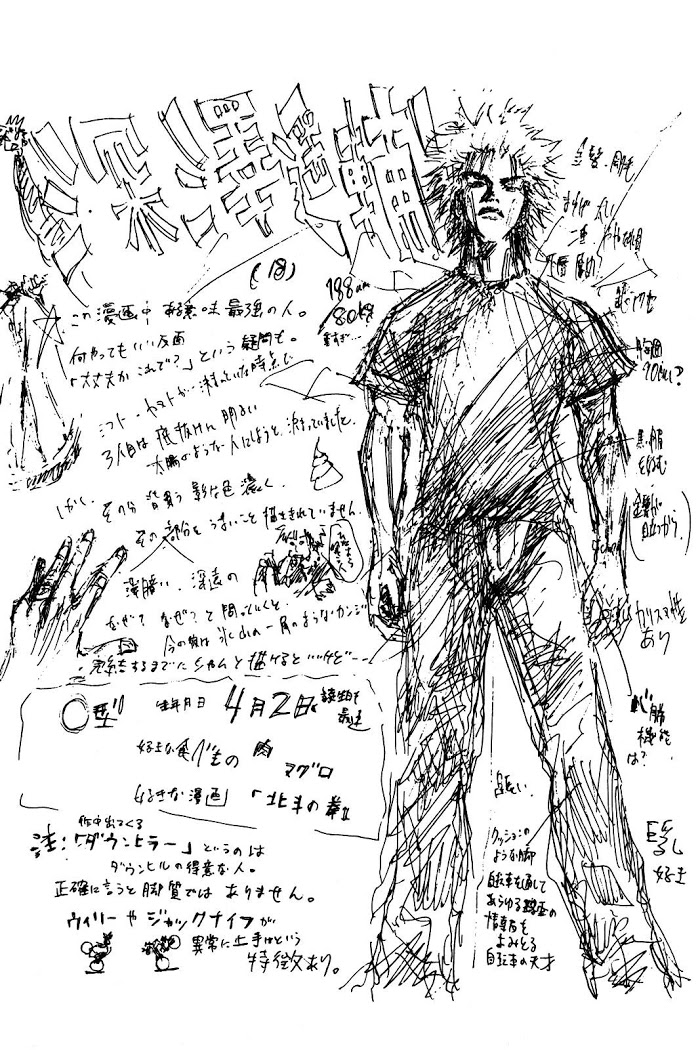 深澤遥輔
(18)
この漫画中 ある意味 最強の人。
何やってもいい反面
「大丈夫か これで?」という疑問も。
ミコト・ヤマトが 決まっていた時点で
3人目は 底抜けに 明るい
太陽のような 人にしようと 決まっていました。
しかし、
その分 背負う 影は色濃く、
その部分を うまいこと 描ききれていません。
深暗い、深遠の
なぜ? なぜ? と問っていくと、
今の質は 氷山の一角のようなカンジ
・完結するまでに ちゃんと描けるといいけど・・・
O型 生年月日 4月2日
好きな食べもの 肉
マグロ
好きな漫画 『北斗の拳』
作中出てくる
注:「ダウンヒラー」というのは
ダウンヒルの得意な人。
正確に言うと 脚質では ありません。
ウィリーやジャックナイフが
異常に上手という
特徴あり。
188cm
80kg
金髪・剛毛
まゆげ 太い
二重
胸囲
90cmくらい?
黒服
を好む
カリスマ性
あり
機能
は?
巨乳
好き
長い
クッションの
ような脚
自転車を通して
あらゆる路面の
情報を
よみとる
自転車の天才